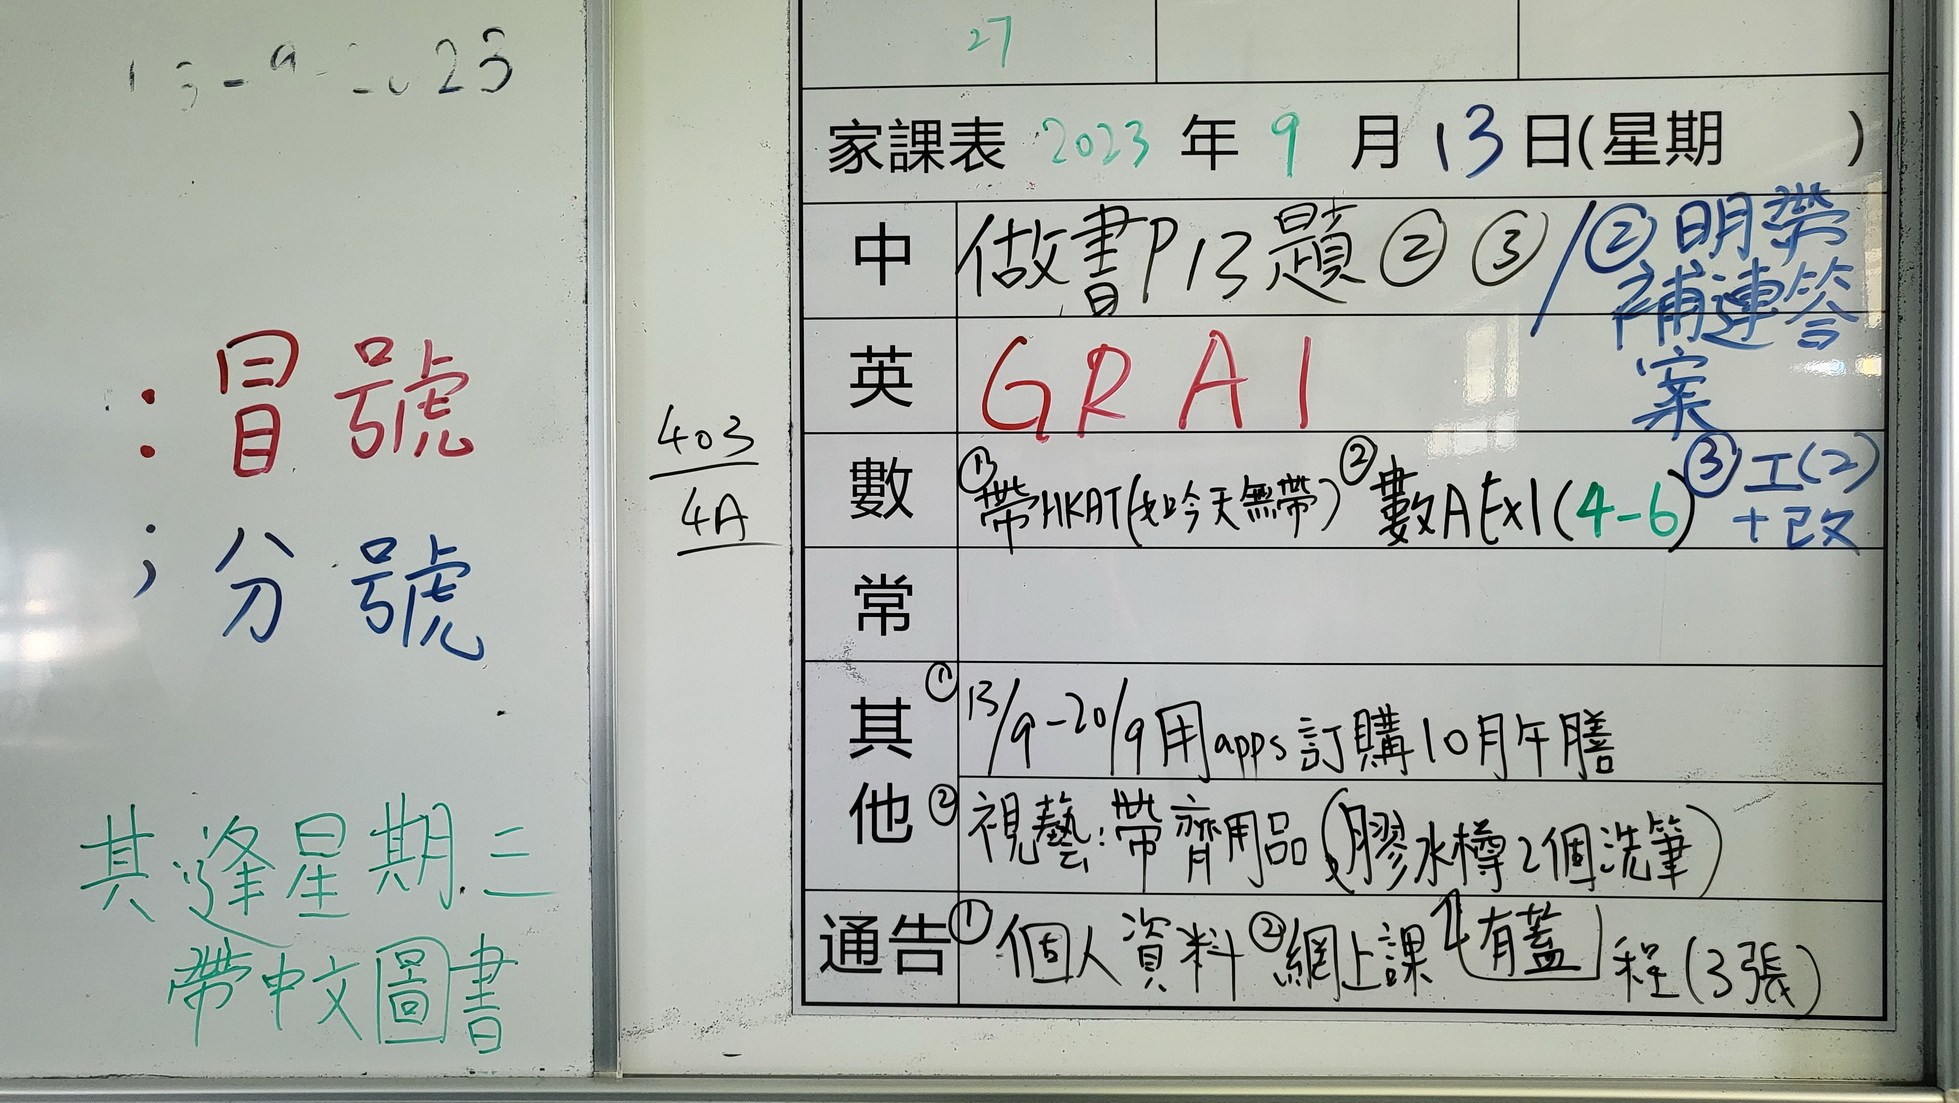 13-9-2023
：冒號
；分號
其逢星期三
帶中文圖書
403
4A
27
家課表 2023 年 9 月 13 日(星期 )
中 做書P13題②③/②明帶
補連答
案
英 GRA1
數 ①帶HKAT(如今天無帶) ②數A Ex1(4-6) ③工(2)
+改
常
其他 ①13/9-20/9用apps訂購10月午膳
②視藝:帶齊用品(膠水樽2個洗筆)
有蓋
通告 ①個人資料 ②網上課程(3張)